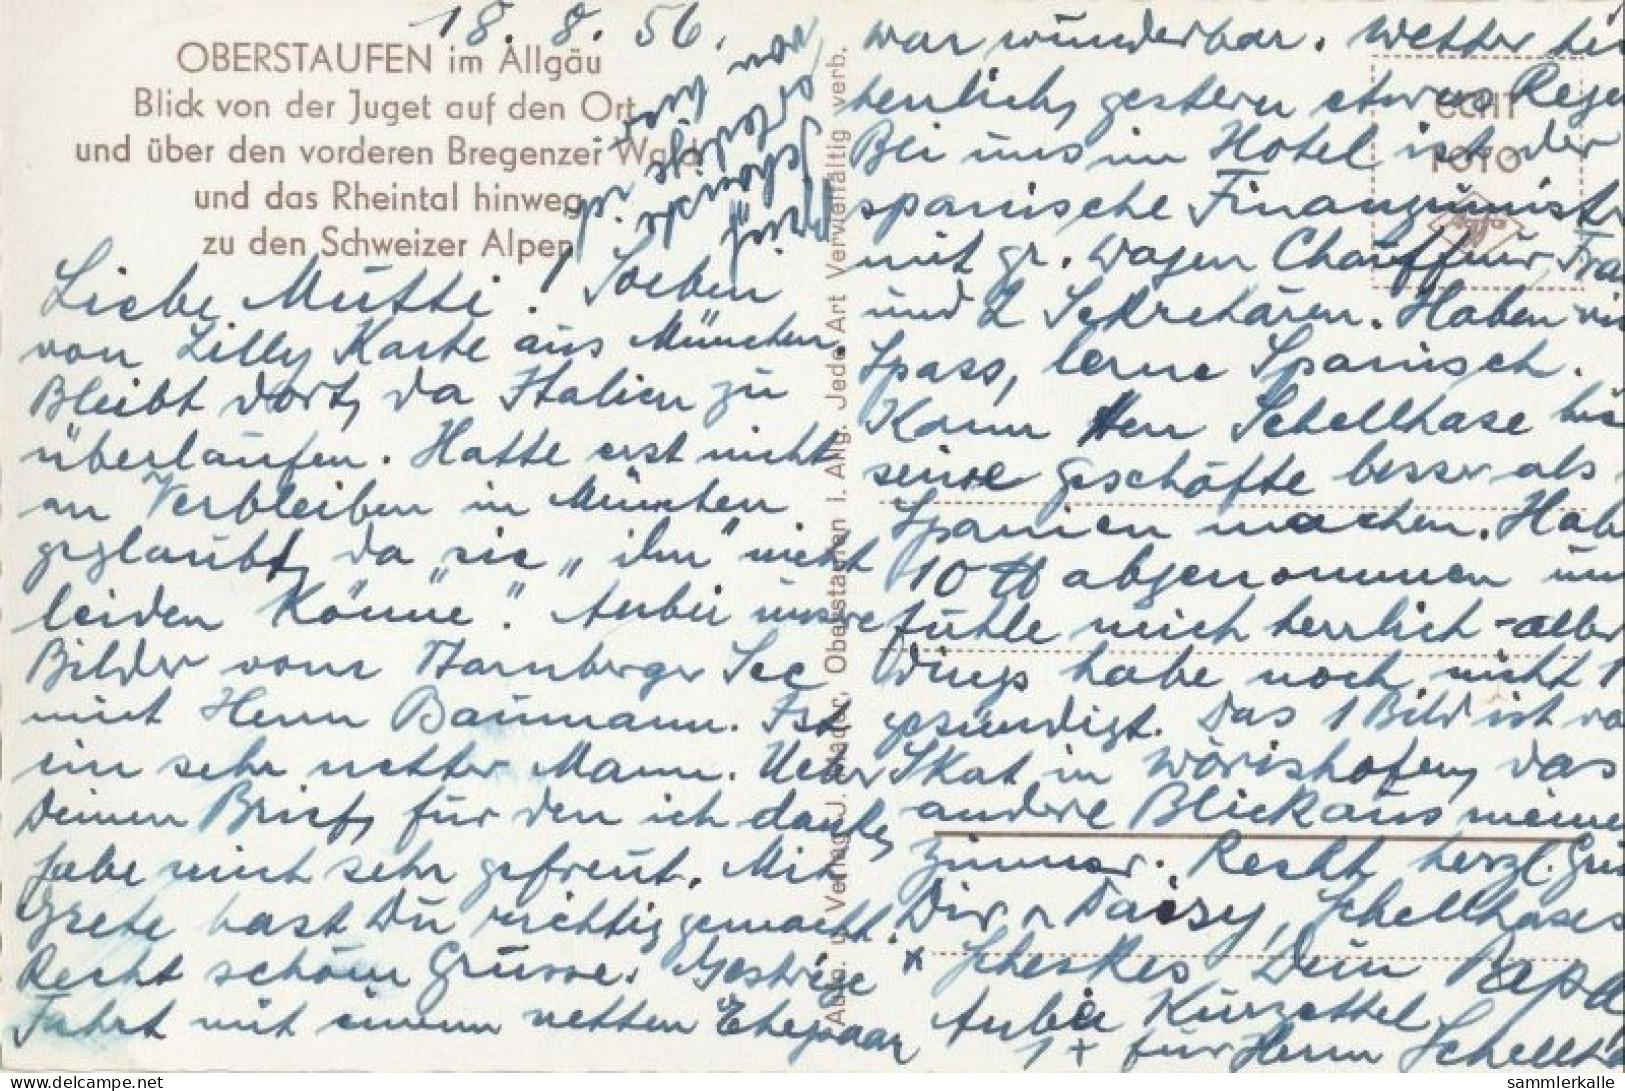 18. 8. 56.
OBERSTAUFEN im Allgäu
Blick von der Juget auf den Ort
und über den vorderen Bregenzer Wald
und das Rheintal hinweg
zu den Schweizer Alpen
Liebe Mutti! Soeben
von Lilly Karte aus München.
Bleibt dort, da Italien zu
überlaufen. Hatte erst nicht
an Verbleiben in München
geglaubt, da "sie" "ihn" nicht
leiden könne". Anbei unsre
Bilder vom Starnberger See
mit Herrn Baumann. Ist
ein sehr netter Mann. Ueber
Deinen Brief, für den ich danke,
habe mich sehr gefreut. Mit
Grete hast Du richtig gemacht.
Recht schöne Grüsse. Gestrige
Fahrt mit einem netten Ehepaar
war wunderbar. Wetter hi
herrlich, gestern etwas Rege
Bei uns im Hotel ist der
spanische Finanzminist
mit gr. Wagen Chauffeur, Fra
und 2 Sekretären. Haben vi
Spass, lerne Spanisch.
Kann Herr Schellhase
seine Geschäfte besser als
Spanien machen. Hab
10 ℔ abgenommen un
fühle mich herrlich - aller
dings habe noch nicht 1
gesündigt. Das 1 Bild ist vo
Skat in Wörishofen, das
andere Blick aus meine
Zimmer. Recht herzl. Grü
Dir u Daisy, Schellhases
Dein Papa
Anbei Kurzettel
1 + für Herrn Schellh
ECHT
FOTO
Agfa
Abtlg. u. Verlag J. Mader, Oberstaufen i. Allg. Jede Art Vervielfältig verb.
sammlerkalle